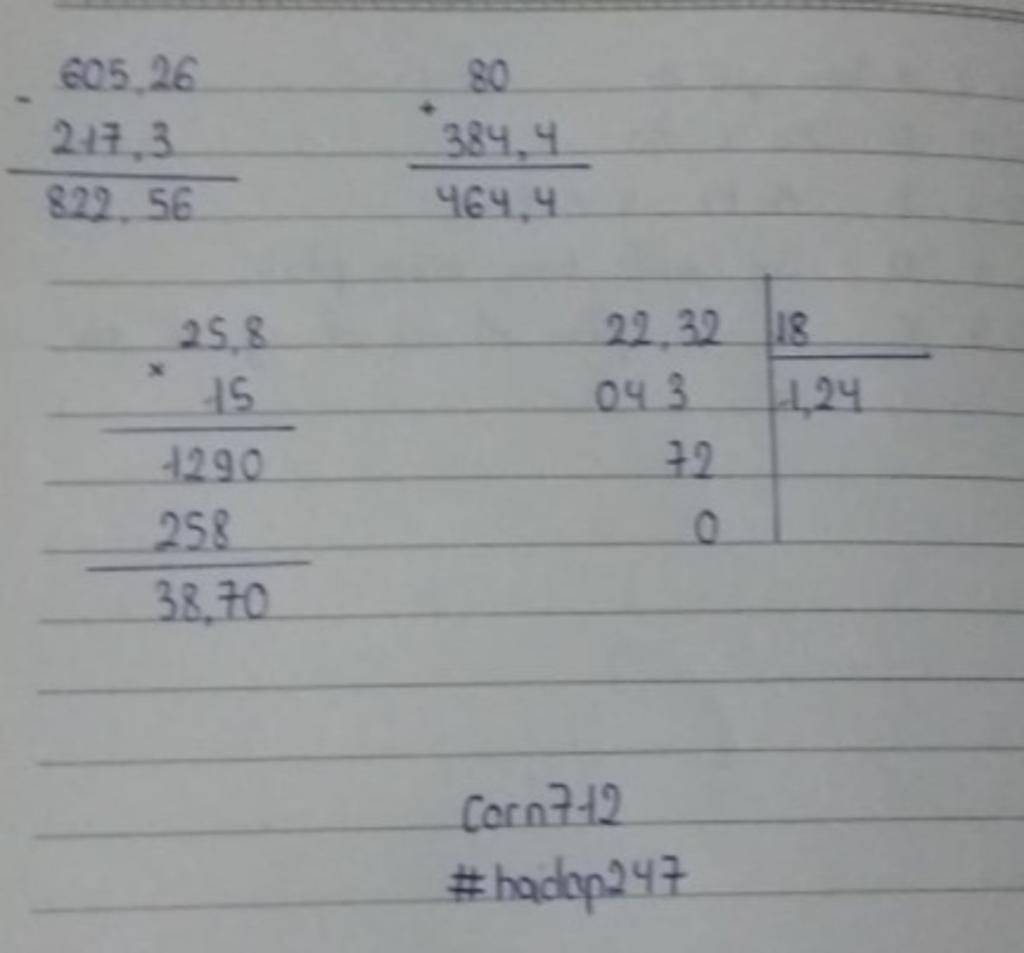 605,26 80
- +
217,3 384,4
822,56 464,4
25,8 22,32 18
x
15 043 1,24
1290 72
258 0
38,70
Corn712
#hadap247